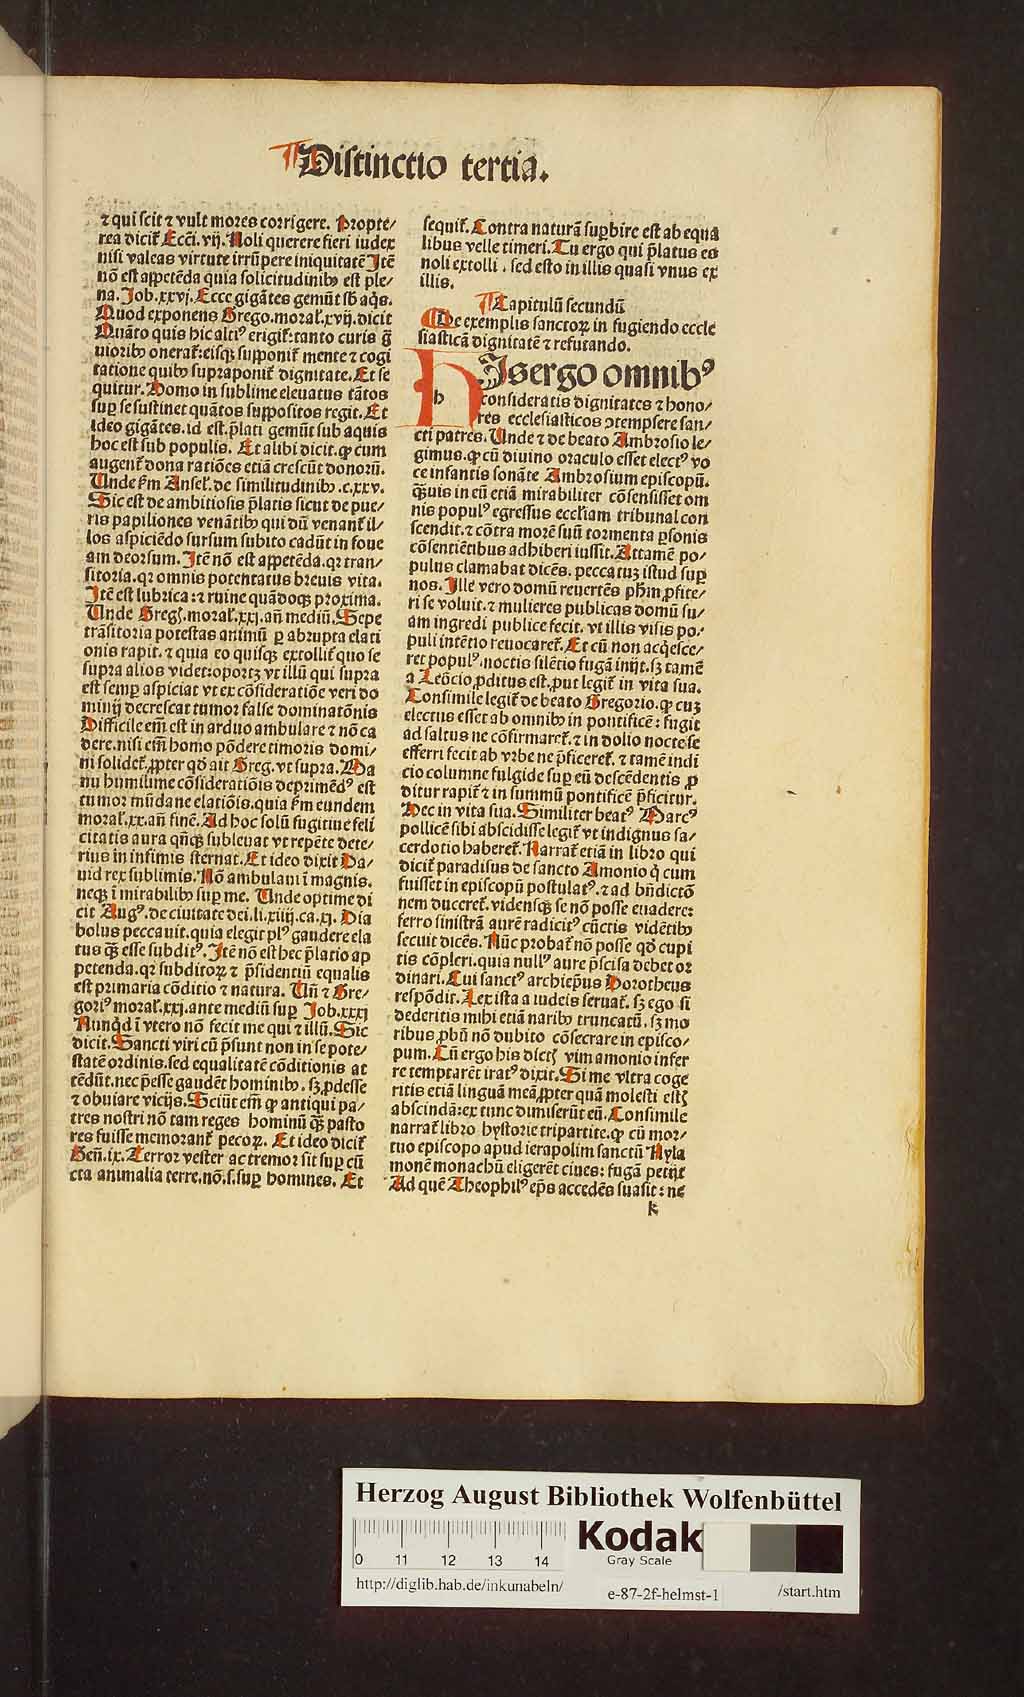 Distinctio tertia.
⁊ qui scit ⁊ vult mores corrigere. Propte/
rea dicit̃ Ecci. vij. Noli querere fieri iudex
nisi valeas virtute irrũpere iniquitatẽ Itẽ
nõ est appetẽda quia solicitudinibꝰ est ple/
na. Job. xxvj. Ecce gigãtes gemũt sb̃ aq̃s.
Quod exponens Grego. moral̃. xvij. dicit
Quãto quis hic altiꝰ erigit̃: tanto curis g̃
uioribꝰ onerat̃: eisqꝫ supponit̃ mente ⁊ cogi
tatione quibꝰ supraponit̃ dignitate. Et se
quitur. Homo in sublime eleuatus tãtos
suꝑ se sustinet quãtos suppositos regit. Et
ideo gigãtes. id est. p̃lati gemũt sub aquis
hoc est sub populis. Et alibi dicit. ꝙ cum
augent̃ dona ratiões etiã crescũt donorũ.
Unde s̃m Ansel̃. de similitudinibꝰ. c. xxv.
Sic est de ambitiosis p̃latis sicut de pue/
ris papiliones venãtibꝰ qui dũ venant̃ il/
los aspiciẽdo sursum subito cadũt in foue
am deorsum. Itẽ nõ est appetẽda. qꝛ tran/
sitoria. qꝛ omnis potentatus breuis vita.
Itẽ est lubrica: ⁊ ruine quãdoqꝫ proxima.
Unde Greg̃. moral̃. xxj. añ mediũ. Sepe
trãsitoria potestas animũ ꝑ abrupta elati
onis rapit. ⁊ quia eo quisqꝫ extollit̃ quo se
supra alios videt: oportꝫ vt illũ qui supra
est semꝑ aspiciat vt ex cõsideratiõe veri do
minij decrescat tumor false dominatõnis
Difficile em̃ est in arduo ambulare ⁊ nõ ca
dere. nisi em̃ homo põdere timoris domi/
ni solidet̃. ꝓpter qð ait Greg. vt supra. Ma
nu humilime cõsideratiõis deprimẽdꝰ est
tumor mũdane elatiõis. quia s̃m eundem
moral̃. xx. añ finẽ. Ad hoc solũ fugitiue feli
citatis aura qñqꝫ subleuat vt repẽte dete/
rius in infimis sternat. Et ideo dixit Da/
uid rex sublimis. Nõ ambulaui ĩ magnis.
neqꝫ ĩ mirabilibꝰ suꝑ me. Unde optime di
cit Augꝰ. de ciuitate dei. li. xiiij. ca. xj. Dia
bolus peccauit. quia elegit plꝰ gaudere ela
tus q̃ꝫ esse subditꝰ. Itẽ nõ est hec p̃latio ap
petenda. qꝛ subditoꝝ ⁊ p̃sidentiũ equalis
est primaria cõditio ⁊ natura. Uñ ⁊ Gre/
goriꝰ moral̃. xxj. ante mediũ suꝑ Job. xxxj
Nunqͥd ĩ vtero nõ fecit me qui ⁊ illũ. Sic
dicit. Sancti viri cũ p̃sunt non in se pote/
statẽ ordinis. sed equalitatẽ cõditionis at
tẽdũt. nec p̃esse gaudẽt hominibꝰ. sꝫ ꝓdesse
⁊ obuiare vicijs. Sciũt em̃ ꝙ antiqui pa/
tres nostri nõ tam reges hominũ q̃ꝫ pasto
res fuisse memorant̃ pecoꝝ. Et ideo dicit̃
Geñ. ix. Terror vester ac tremor sit suꝑ cũ
cta animalia terre. nõ. s. suꝑ homines. Et
sequit̃. Contra naturã suꝑbire est ab equa
libus velle timeri. Tu ergo qui p̃latus es
noli extolli. sed esto in illis quasi vnus ex
illis.
Capitulũ secundũ
De exemplis sanctoꝝ in fugiendo eccle
siasticã dignitatẽ ⁊ refutando.
h Is ergo omnibꝰ
consideratis dignitates ⁊ hono/
res ecclesiasticos ↄtempsere san/
cti patres. Unde ⁊ de beato Ambrosio le/
gimus. ꝙ cũ diuino oraculo esset electꝰ vo
ce infantis sonãte Ambrosium episcopũ.
q̃uis in eũ etiã mirabiliter cõsensisset om
nis populꝰ egressus eccl̃iam tribunal con
scendit. ⁊ cõtra morẽ suũ tormenta ꝑsonis
cõsentiẽtibus adhiberi iussit. Attamẽ po/
pulus clamabat dicẽs. peccatuꝫ istud suꝑ
nos. Ille vero domũ reuertẽs ph̃m ꝓfite/
ri se voluit. ⁊ mulieres publicas domũ su/
am ingredi publice fecit. vt illis visis po/
puli intẽtio reuocaret̃. Et cũ non acq̃esce/
ret populꝰ. noctis silẽtio fugã inijt. sꝫ tamẽ
a Leõcio ꝓditus est. ꝓut legit̃ in vita sua.
Consimile legit̃ de beato Gregorio. ꝙ cuꝫ
electus esset ab omnibꝰ in pontificẽ: fugit
ad saltus ne cõfirmaret̃. ⁊ in dolio nocte se
efferri fecit ab vrbe ne p̃ficeret̃. ⁊ tamẽ indi
cio columne fulgide suꝑ eũ descẽdentis ꝓ
ditur rapit̃ ⁊ in summũ pontificẽ p̃ficitur.
Hec in vita sua. Similiter beatꝰ Marcꝰ
pollicẽ sibi abscidisse legit̃ vt indignus sa/
cerdotio haberet̃. Narrat̃ etiã in libro qui
dicit̃ paradisus de sancto Amonio q̇ cum
fuisset in episcopũ postulatꝰ. ⁊ ad bñdictõ
nem duceret̃. vidensqꝫ se nõ posse euadere:
ferro sinistrã aurẽ radicitꝰ cũctis vidẽtibꝰ
secuit dicẽs. Nũc probat̃ nõ posse qð cupi
tis cõpleri. quia nullꝰ aure p̃scisa debet or
dinari. Cui sanctꝰ archiep̃us Dorotheus
respõdit. Lex ista a iudeis seruat̃. sꝫ ego si
dederitis mihi etiã naribꝰ truncatũ. sꝫ mo
ribus ꝓbũ nõ dubito cõsecrare in episco/
pum. Cũ ergo his dictꝭ vim amonio infer
re temptarẽt iratꝰ dixit. Si me vltra coge
ritis etiã linguã meã ꝓpter quã molesti estꝭ
abscindã: ex tunc dimiserũt eũ. Consimile
narrat̃ libro hystorie tripartite. ꝙ cũ mor/
tuo episcopo apud ierapolim sanctũ Nyla
monẽ monachũ eligerẽt ciues: fugã petijt
Ad quẽ Theophilꝰ ep̃s accedẽs suasit: ne
k
Herzog August Bibliothek Wolfenbüttel
0 11 12 13 14
Kodak
Gray Scale
http://diglib.hab.de/inkunabeln/ e-87-2f-helmst-1 /start.htm